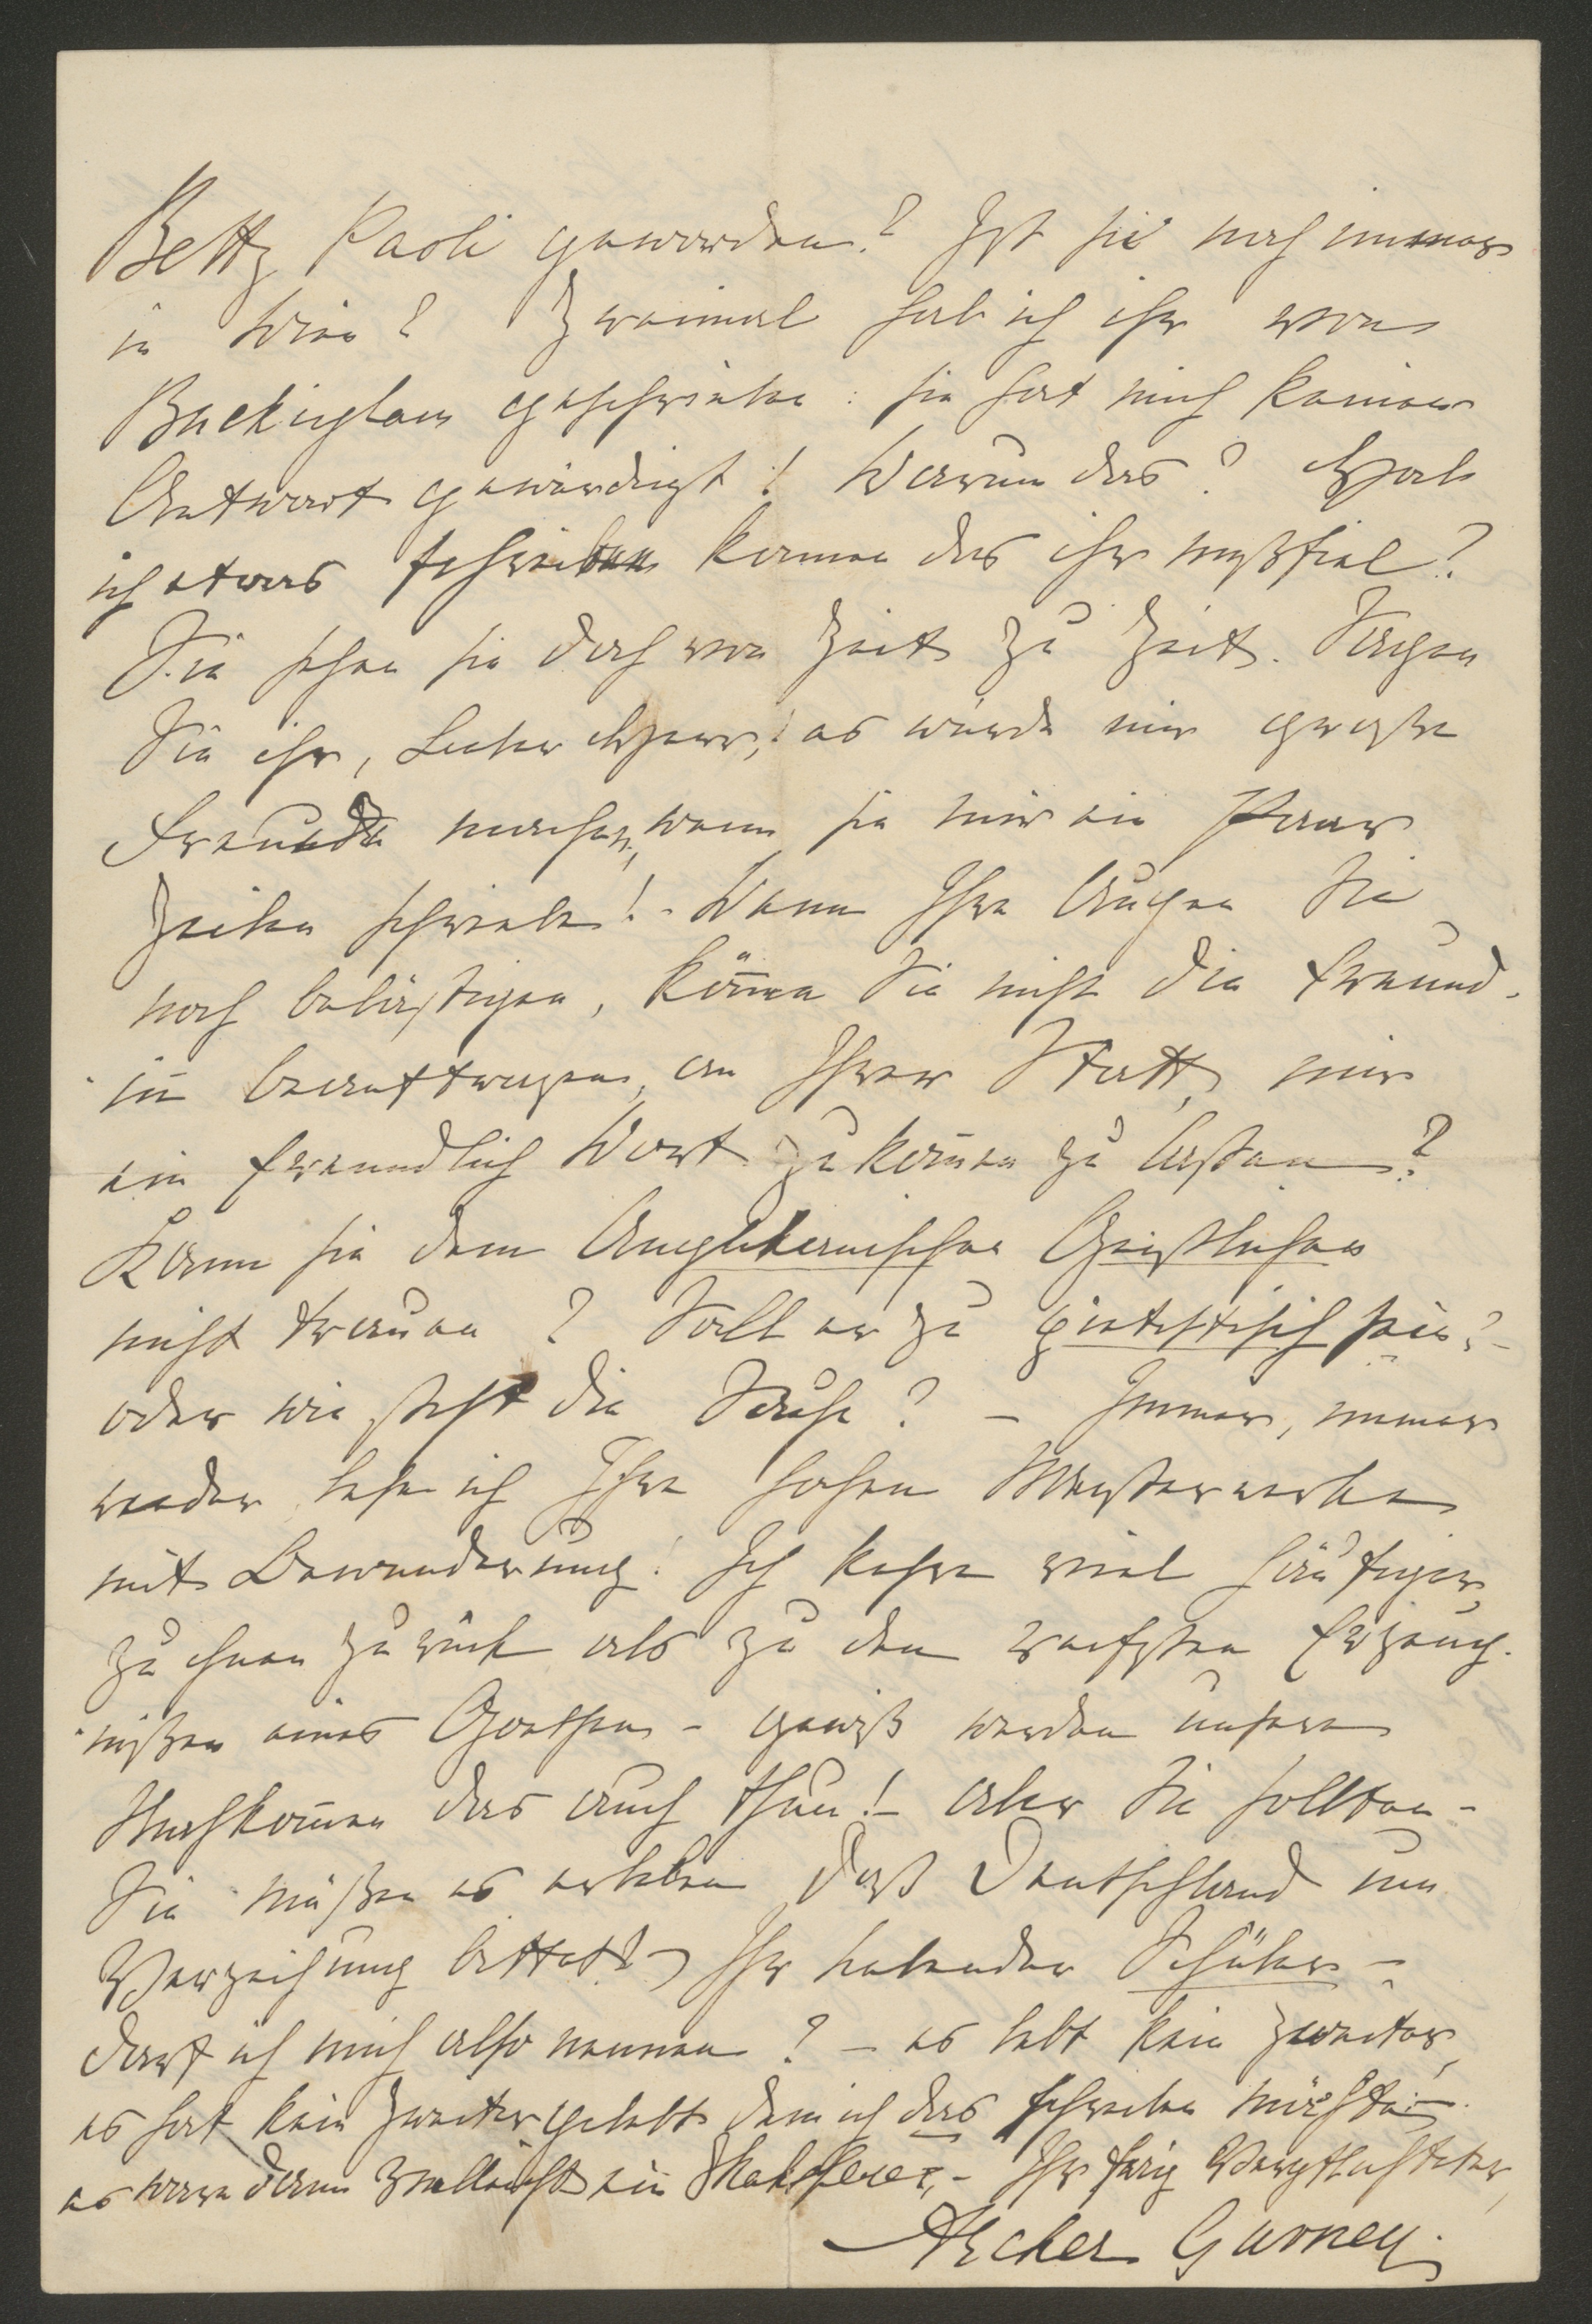 Betty Paoli geworden? Ist sie noch immer
in Wien? Zweimal hab ich ihr von
Buckingham geschrieben: sie hat mich keiner
Antwort gewürdigt! Warum das? Hab
ich etwas schreiben können das ihr mißfiel?
Sie sehen sie doch von Zeit zu Zeit. Sagen
Sie ihr, Lieber Herr, es würde mir große
Freude machen, wenn sie mir ein Paar
Zeilen schriebe! - Wenn Ihre Augen Sie
noch belästigen, könen Sie nicht die Freund-
in beauftragen, an Ihrer Statt, mir
ein freundlich Wort zukomen zu laßen?
Kann sie dem Anglikanischen Geistlichen
nicht trauen? Soll er zu pietistisch sein? -
oder wie steht die Sache? - Immer, immer
wieder lese ich Ihre hohen Meisterwerke
mit Bewunderung! Ich kehre viel häufiger
zu ihnen zurück als zu den reifsten Erzeug-
nißen eines Goethen - gewiß werden unsere
Nachkomen das auch thun! - Aber Sie sollten -
Sie müßen es erleben daß Deutschland um
Verzeihung bittet! - Ihr liebender Schüler -
darf ich mich also nennen? - es lebt kein zweiter,
es hat kein zweiter gelebt dem ich das schreiben möchte -
es wäre denn vielleicht ein Shakspere, - Ihr Verpflichteter,
Archer Gurney.